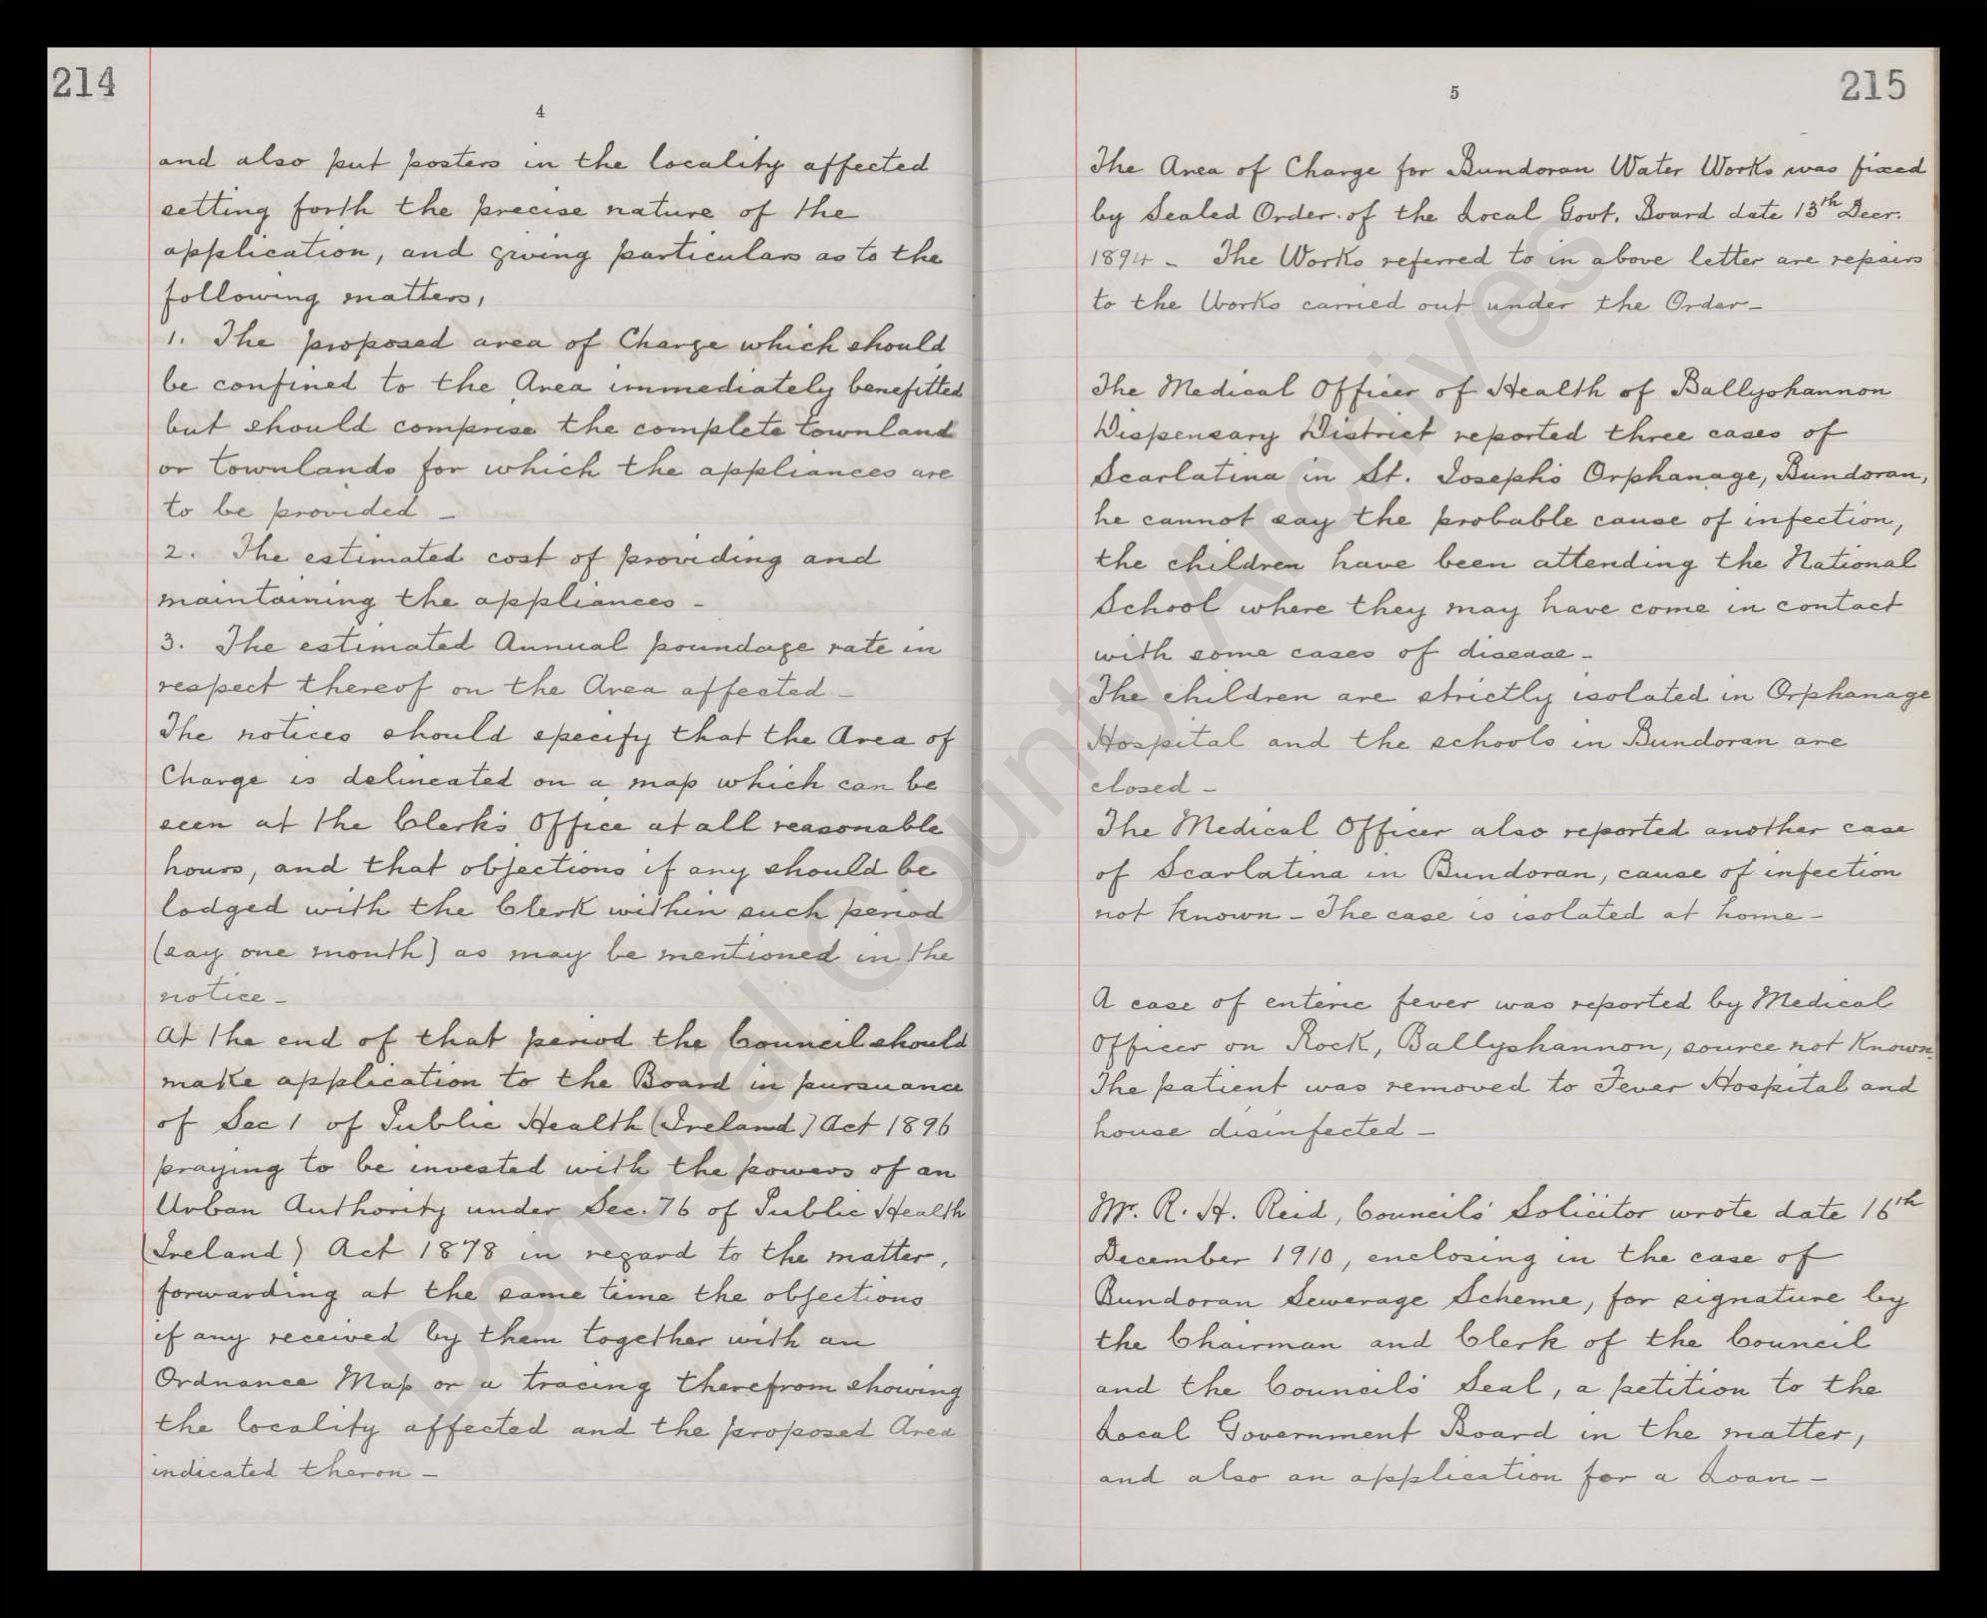 214
4
and also put posters in the locality affected
setting forth the precise nature of the
application, and giving particulars as to the
following matters,
1. The proposed area of Charge which should
be confined to the Area immediately benefitted
but should comprise the complete townland
or townlands for which the appliances are
to be provided -
2. The estimated cost of providing and
maintaining the appliances -
3. The estimated Annual poundage rate in
respect thereof on the Area affected -
The notices should specify that the Area of
Charge is delineated on a map which can be
seen at the Clerk's Office at all reasonable
hours, and that objections if any should be
lodged with the Clerk within such period
(say one month) as may be mentioned in the
notice -
At the end of that period the Council should
make application to the Board in pursuance
of Sec 1 of Public Health (Ireland) Act 1896
praying to be invested with the powers of an
Urban Authority under Sec. 76 of Public Health
(Ireland) Act 1878 in regard to the matter,
forwarding at the same time the objections
if any received by them together with an
Ordnance Map or a tracing therefrom showing
the locality affected and the proposed Area
indicated theron -
215
5
The Area of Charge for Bundoran Water Works was fixed
by Sealed Order of the Local Govt. Board date 13th Decr.
1894 - The Works referred to in above letter are repairs
to the Works carried out under the Order -
The Medical Officer of Health of Ballyshannon
Dispensary District reported three cases of
Scarlatina in St. Joseph's Orphanage, Bundoran,
he cannot say the probable cause of infection,
the children have been attending the National
School where they may have come in contact
with some cases of disease -
The children are strictly isolated in Orphanage
Hospital and the schools in Bundoran are
closed -
The Medical Officer also reported another case
of Scarlatina in Bundoran, cause of infection
not known - The case is isolated at home -
A case of enteric fever was reported by Medical
Officer on Rock, Ballyshannon, source not known.
The patient was removed to Fever Hospital and
house disinfected -
Mr. R. H. Reid, Councils' Solicitor wrote date 16th
December 1910, enclosing in the case of
Bundoran Sewerage Scheme, for signature by
the Chairman and Clerk of the Council
and the Councils' Seal, a petition to the
Local Government Board in the matter,
and also an application for a Loan -
Donegal County Archives